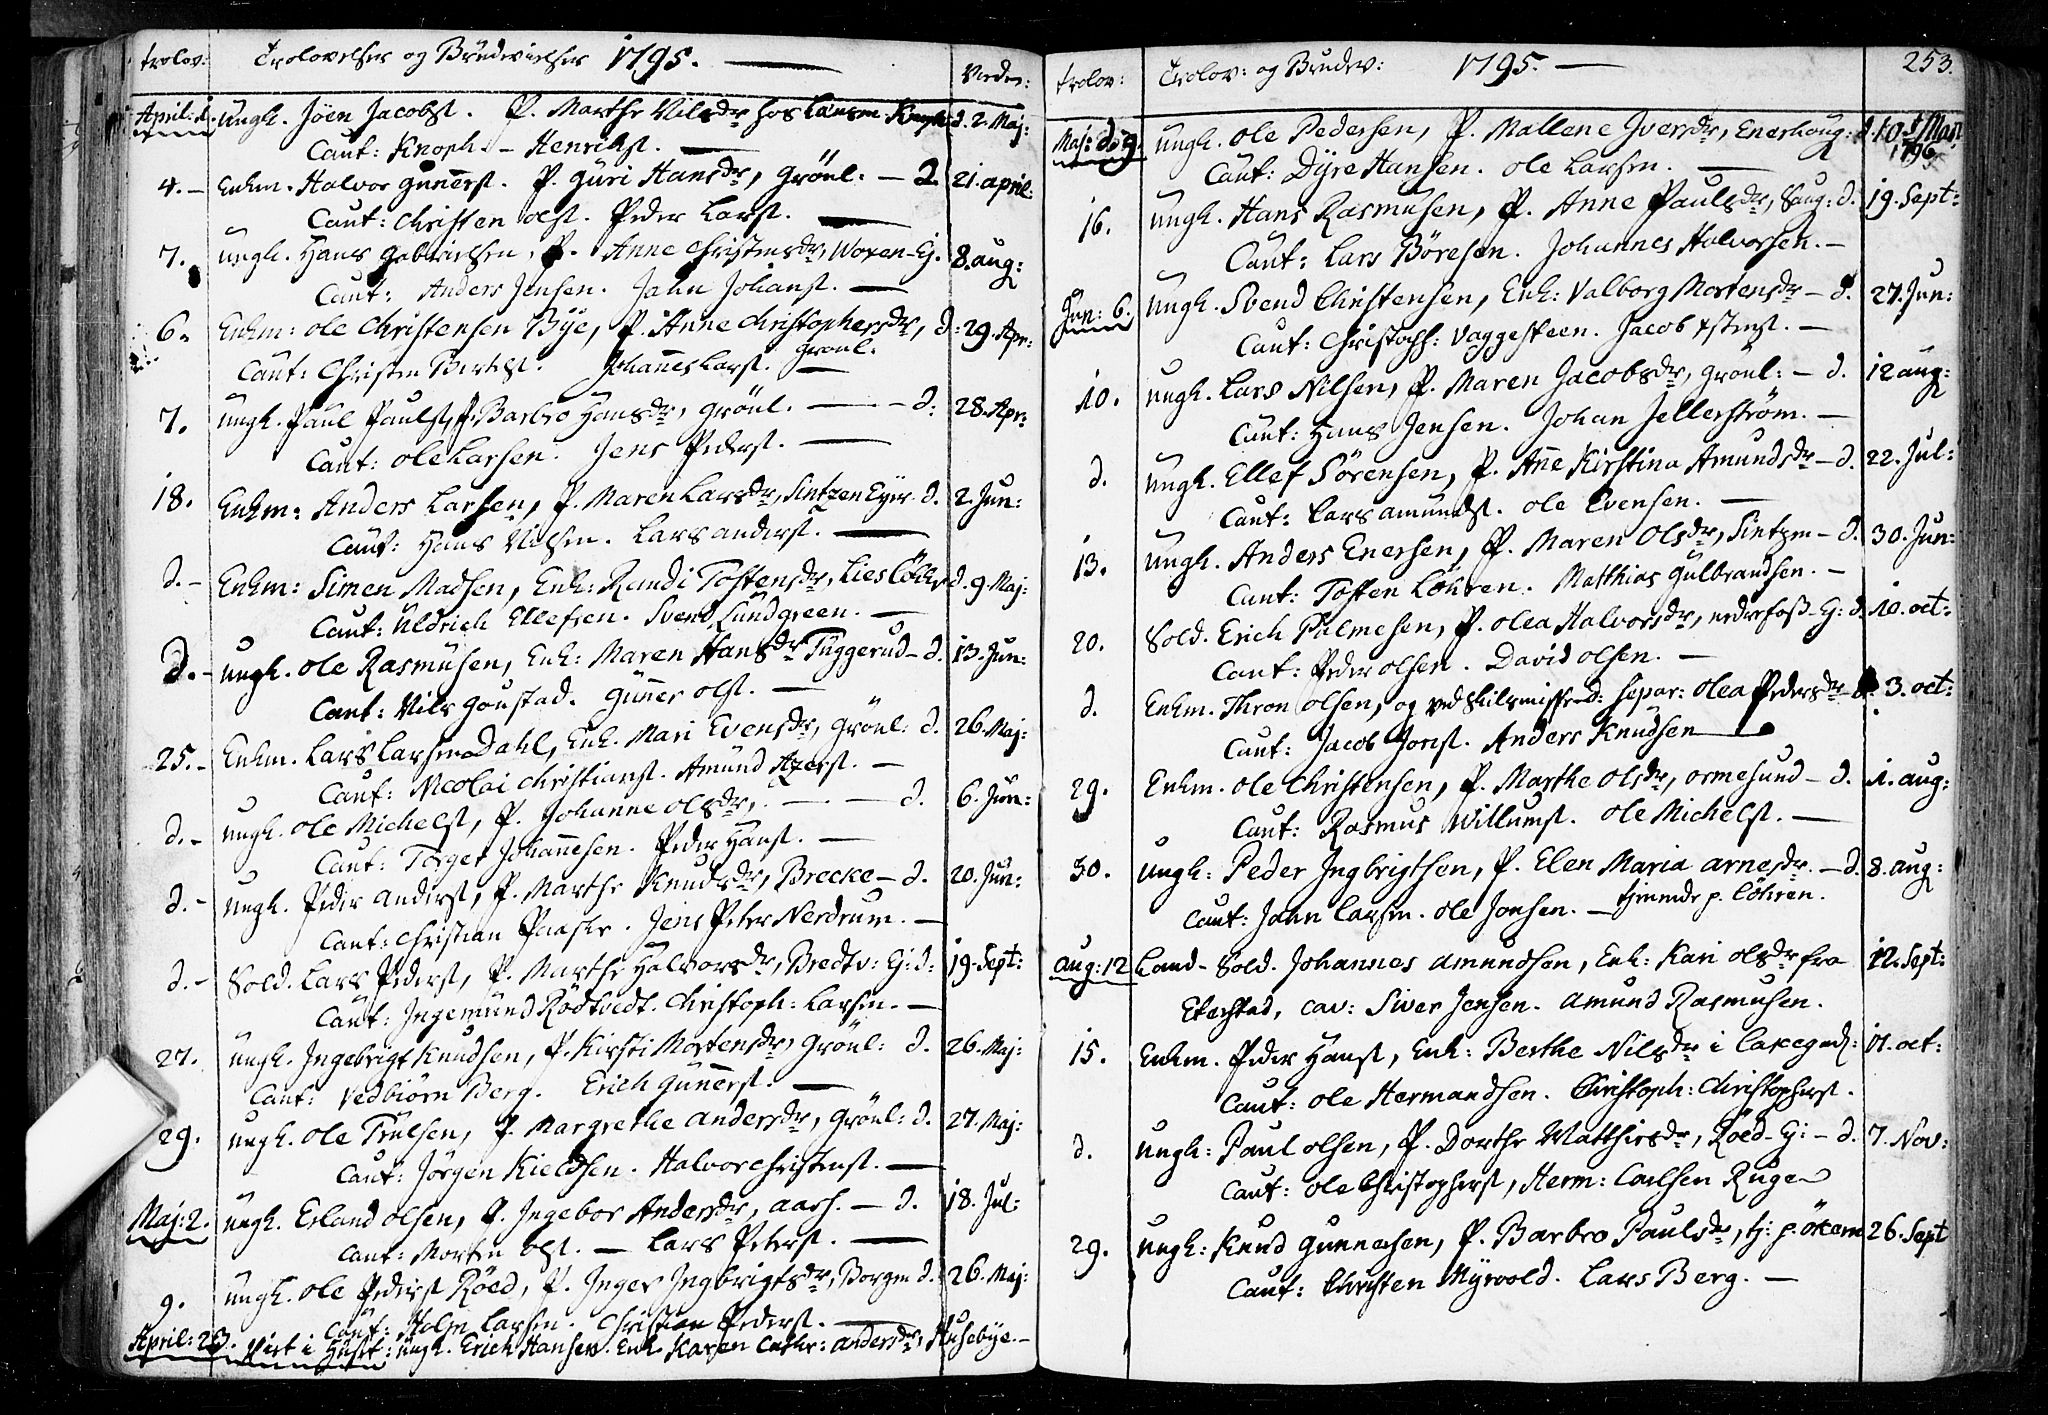 trolov: Trolovelser og Brudevielser 1795. Viede:
April: d. Ungk. Joen Jacobs. P. Marthe Nilsdr hos Lensm. Knoph: d. 2. Maj:
Caut: Knoph. – Henrichs.
4. – Enkm. Halvor Gunners. P. Guri Hansdr, Grönl. – d. 21. april:
Caut: Christen Ols. Peder Lars.
7. Ungk. Hans Gabrielsen, P. Anne Christensdr, Woxen-Ej. 8. aug:
Caut: Anders Jensen. Jahn Johans.
6. Enkm: Ole Christensen Bye, P. Anne Christophersdr, d: 29. Apr:
Grönl.
Caut: Christen Bertels. Johannes Lars.
7. Ungk. Paul Pauls, P. Barbro Hansdr, Grönl. – d: 28. Apr:
Caut: Ole Larsen. Jens Peders.
18. Enkm: Anders Larsen, P. Maren Larsdr, Sintzen Eyer d. 2. Jun:
Caut: Hans Nilsen. Lars Anders.
d. – Enkm: Simen Madsen, Enk: Randi Tostensdr, Lies Löche d. 9. Maj:
Caut: Uldrich Ellefsen. Svend Lundgreen.
d. – Ungk. Ole Rasmusen, Enk: Maren Hansdr Tuggerud – d. 13. Jun:
Caut: Nils Goustad. Gunner Ols.
25. – Enkm. Lars Larsen Dahl, Enk. Mari Evensdr, Grönl: d. 26. Maj:
Caut: Nicolai Christians. Amund Azers.
d. – Ungk. Ole Michels, P. Johanne Olsdr, – d. 6. Jun:
Caut: Torger Johannesen. Peder Hans.
d. – Ungk. Peder Anders, P. Marthe Knudsdr, Brecke – d. 20. Jun:
Caut: Christian Paaske. Jens Peter Nerdrum.
d. – Sold. Lars Peders, P. Marthe Halvorsdr, Bredtv: Ej: d: 19. Sept:
Caut: Ingemund Rödtvedt. Christoph: Larsen.
27. Ungk. Ingebrigt Knudsen, P. Kirsti Mortensdr, Grönl: d. 26. Maj:
Caut: Vedbiörn Berg. Erich Gunners.
29. Ungk. Ole Trulsen, P. Margrethe Andersdr, Grönl: d. 27. Maj:
Caut: Jörgen Kieldsen. Halvor Christens.
Maj: 2. Ungk. Erland Olsen, P. Ingebor Andersdr, Aars. – d. 18. Jul:
Caut: Morten Ols. – Lars Peters.
9. Ungk. Ole Peders Röed, P. Inger Ingbrigtsdr, Borgen d. 26. Maj:
Caut: Helge Larsen. Christian Peders.
April: 23. Viet i Huset: Ungk. Erich Hansen. Enk. Karen Cathr: Andersdr, Husebye.
trolov: Trolov: og Brudev: 1795. 253.
Maj: d. 9. Ungk. Ole Pedersen, P. Mallene Iversdr, Enerhoug: d. 10t Mart
1796
Caut: Dyre Hansen. Ole Larsen.
16. Ungk. Hans Rasmusen, P. Anne Paulsdr, Haug: d. 19. Sept:
Caut: Lars Böresen. Johannes Halvorsen.
Jun: 6. Ungk. Svend Christensen, Enk: Valborg Mortensdr – d. 27. Jun:
Caut: Christoph: Vaggesteen. Jacob Ystens.
10. Ungk. Lars Nilsen, P. Maren Jacobsdr, Grönl: – d. 12 aug:
Caut: Hans Jensen. Johan Jellerström.
d. Ungk. Ellef Sörensen, P. Anne Kirstina Amundsdr – d. 22. Jul:
Caut: Lars Amunds. Ole Evensen.
13. Ungk. Anders Enersen, P. Maren Olsdr, Sintzen – d. 30. Jun:
Caut: Tosten Löhren. Matthias Gulbrandsen.
20. Sold. Erich Palmesen, P. Olea Halvorsdr, nederfoss-Ej: d. 10. oct:
Caut: Peder Olsen. David Olsen.
d. Enkm. Thron Olsen, og ved Skilsmisse d: separ: Olea Pedersdr – d. 3. oct:
Caut: Jacob Jons. Anders Knudsen
29. Enkm. Ole Christensen, P. Marthe Olsdr, Ormesund – d. 1. aug:
Caut: Rasmus Willums. Ole Michels.
30. Ungk: Peder Ingbrigtsen, P. Elen Maria Arnesdr. – d. 8. aug:
Caut: Jahn Larsen. Ole Jonsen. – tjenende p. Löhren.
Aug: 12 Land-Sold. Johannes Amundsen, Enk: Kari Olsdr fra 12. Sept:
Etterstad, cav: Siver Jensen. Amund Rasmusen.
15. Enkm. Peder Hans, Enk: Berthe Nilsdr i Lakegad: 11. oct:
Caut: Ole Hermandsen. Christoph: Christophers.
d. Ungk: Paul Olsen, P. Dorthe Matthisdr, Röed-Ej: – d. 7. Nov:
Caut: Ole Christophers, Herm: Carlsen Ruge
29. Ungk: Knud Gunnersen, P. Barbro Paulsdr, tj: p. Ökern 26. Sept
Caut: Christen Myrvold. Lars Berg.